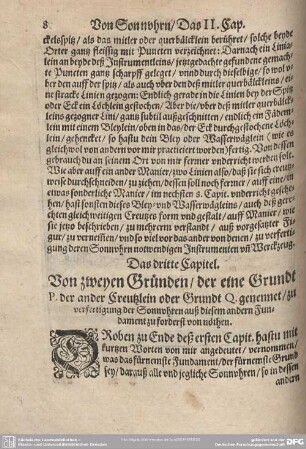 8 Von Sonnvhrn / Das II. Cap.
ckelsspitz / als das mitler oder querbälcklein berühret / solche beyde
Orter gantz fleissig mit Puncten verzeichnet: Darnach ein Linia-
lein an beyde deß Instrumentleins / jetztgedachte gefundene gemach-
te Puncten gantz scharpff geleget / vnnd durch dieselbige / so wol v-
ber den auff der spitz / als auch vber den deß mitler querbälckleins / ei-
ne stracke Linien gezogen: Endlich gerade in die Linien bey der Spitz
oder Eck ein Löchlein gestochen / Aber die / vber deß mitler querbälck-
leins gezogner Lini / gantz subtil außgeschnitten / endlich ein Fädem-
lein mit einem Bleylein / oben in das / der Eck durchgestochene Löch-
lein / gehencket / so hastu dein Bley oder Wasserwäglein (wie es
gleichwol von andern vor mir practiciert worden) fertig. Von dessen
gebrauch du an seinem Ort von mir ferrner vnderricht werden solt.
Wie aber auff ein ander Manier / zwo Linien also / daß sie sich creutz-
weise durchschneiden / zu ziehen / dessen soll noch ferrner / auff eine / in
etwas sonderliche Manier / im sechsten 3. Capit. vnderricht gescheh-
hen / hast sonsten dieses Bley / vnd Wasserwägleins / auch deß ge-
rechten gleichweitigen Creutzes form vnd gestalt / auff Manier / wie
sie jetzo beschrieben / zu mehrerm verstandt / auß vorgesatzter Fi-
gur / zu vernemen / vnd so viel vor das ander von denen / zu verferti-
gung deren Sonnvhrn notwendigen Instrumenten vñ Werckzeug.
Das dritte Capitel.
Von zweyen Gründen / der eine Grundt
P. der ander Creutzlein oder Grundt Q. genennet / zu
verfertigung der Sonnvhren auß diesem andern Fun-
dament zu forderst von nöthen.
DRoben zu Ende deß ersten Capit. hastu mit
kurtzen Worten von mir angedeutet / vernommen /
was das fürnemste Fundament / der fürnemste Grund
sey / darauß alle vnd jegliche Sonnvhren / so in dessen
andern